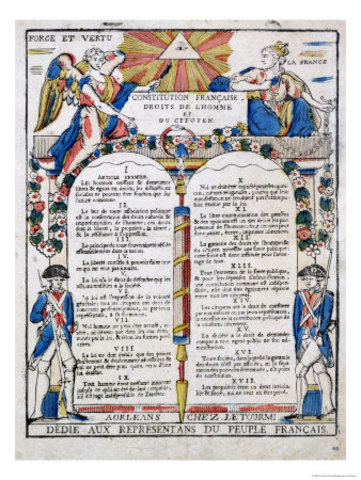 FORCE ET VERTU
LA FRANCE
CONSTITUTION FRANÇAISE.
DROITS DE L'HOMME
ET
DU CITOYEN.
I
ARTICLE PREMIER.
Les hommes naissent & demeurent
libres & égaux en droits, les distinctions
sociales ne peuvent être fondées que sur
l'utilité commune.
II.
Le but de toute association politique
est la conservation des droits naturels &
imprescriptibles de l'homme; ces droits
sont la liberté, la propriété, la sûreté,
& la résistance à l'oppression.
III.
Le principe de toute souveraineté réside
essentiellement dans la nation.
IV.
La liberté consiste à pouvoir faire tout
ce qui ne nuit pas
V.
La loi n'a le droit de défendre que les
actions nuisibles à la société.
VI.
La loi est l'expression de la volonté
générale; tous les citoyens ont droit de
concourir personnellement, ou par leurs
représentans, à sa formation.
VII.
Nul homme ne peut être accusé,
ni détenu que dans les cas déterminés
par la loi, & selon les formes
VIII.
La loi ne doit établir que des peines
strictement & évidemment nécessaires
IX.
Tout homme étant présumé innocent
X.
Nul ne doit être inquiété pour ses opinions,
pourvu que leur
manifestation ne trouble pas l'ordre public
établi par la loi.
XI.
La libre communication des pensées
& des opinions est un des droits les plus
précieux de l'homme; tout citoyen peut
donc parler, écrire, imprimer librement
XII.
La garantie des droits de l'homme &
du citoyen nécessite une force publique; cette
force est donc instituée pour l'avantage
de tous.
XIII.
Pour l'entretien de la force publique,
& pour les dépenses d'administration
une contribution commune est indispensable;
XIV.
Les citoyens ont le droit de constater
par eux mêmes ou par leurs représentans
la nécessité de la contribution publique
XV.
La société a le droit de demander
compte à tout agent public de son administration.
XVI.
Toute société, dans laquelle la garantie
des droits n'est pas assurée,
XVII.
Les propriétés étant un droit inviolable
& sacré, nul ne peut en être privé
A ORLEANS CHEZ LETOURMI
DÉDIÉ AUX REPRÉSENTANS DU PEUPLE FRANÇAIS.